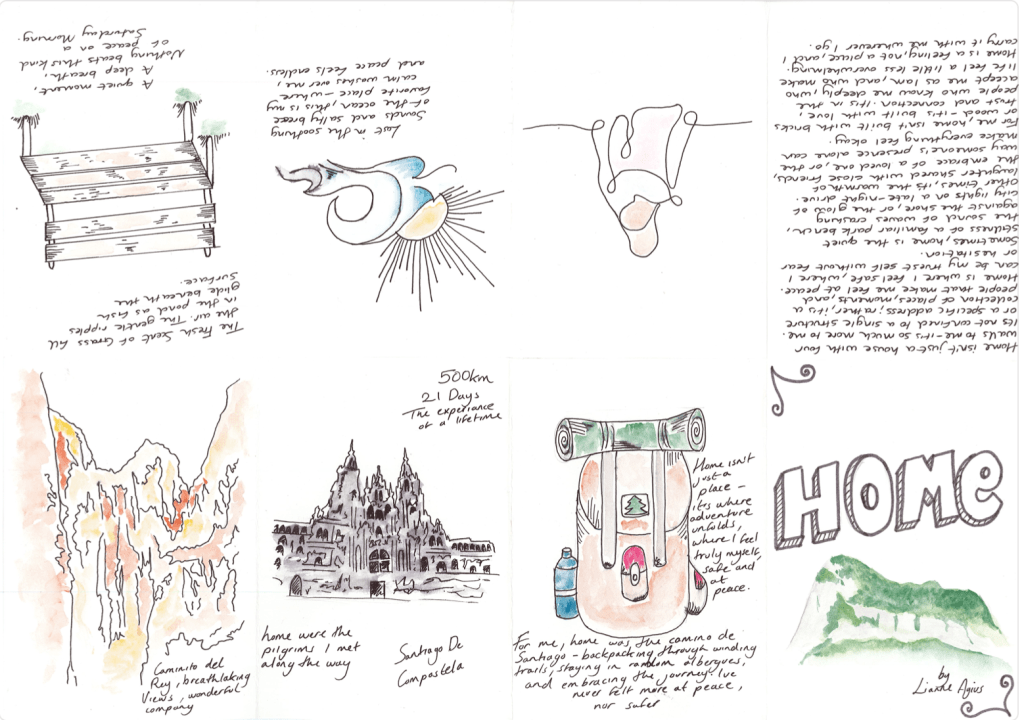 HOME
by
Lianne Agius
Home isn't just a house with four
walls to me-it's so much more to me.
Its not confined to a single structure
or a specific address; rather, it's a
collection of places, moments, and
people that make me feel at peace.
Home is where I feel safe, where I
can be my truest self without fear
or hesitation.
Sometimes, home is the quiet
stillness of a familiar park bench,
the sound of waves crashing
against the shore, or the glow of
city lights on a late-night drive.
Other times, its the warmth of
laughter shared with close friends,
the embrace of a loved one, or the
way someone's presence alone can
make everything feel okay.
For me, home isn't built with bricks
or wood - it's built with love,
trust and connection. It's in the
people who know me deeply, who
accept me as I am, and who make
life feel a little less overwhelming.
Home is a feeling, not a place, and I
carry it with me wherever I go.
Lost in the soothing
Sounds and salty breeze
of the ocean, this is my
favorite place - where
calm washes over me,
and peace feels endless.
The Fresh Scent of Grass fill
the air. The gentle ripples
in the pond as fish
glide beneath the
surface.
A quiet moment,
A deep breath,
Nothing beats this kind
of peace on a
Saturday Morning.
Caminito del
Rey, breathtaking
Views, wonderful
company
500km
21 Days
The experiance
of a lifetime
home were the
pilgrims I met
along the way
Santiago De
Compostela
Home isn't
just a
place -
its where
adventure
unfolds,
where I feel
truly myself,
safe and
at
peace.
For me, home was the camino de
Santiago - backpacking through winding
trails, staying in random albergues,
and embracing the journey. Ive
never felt more at peace,
nor safer